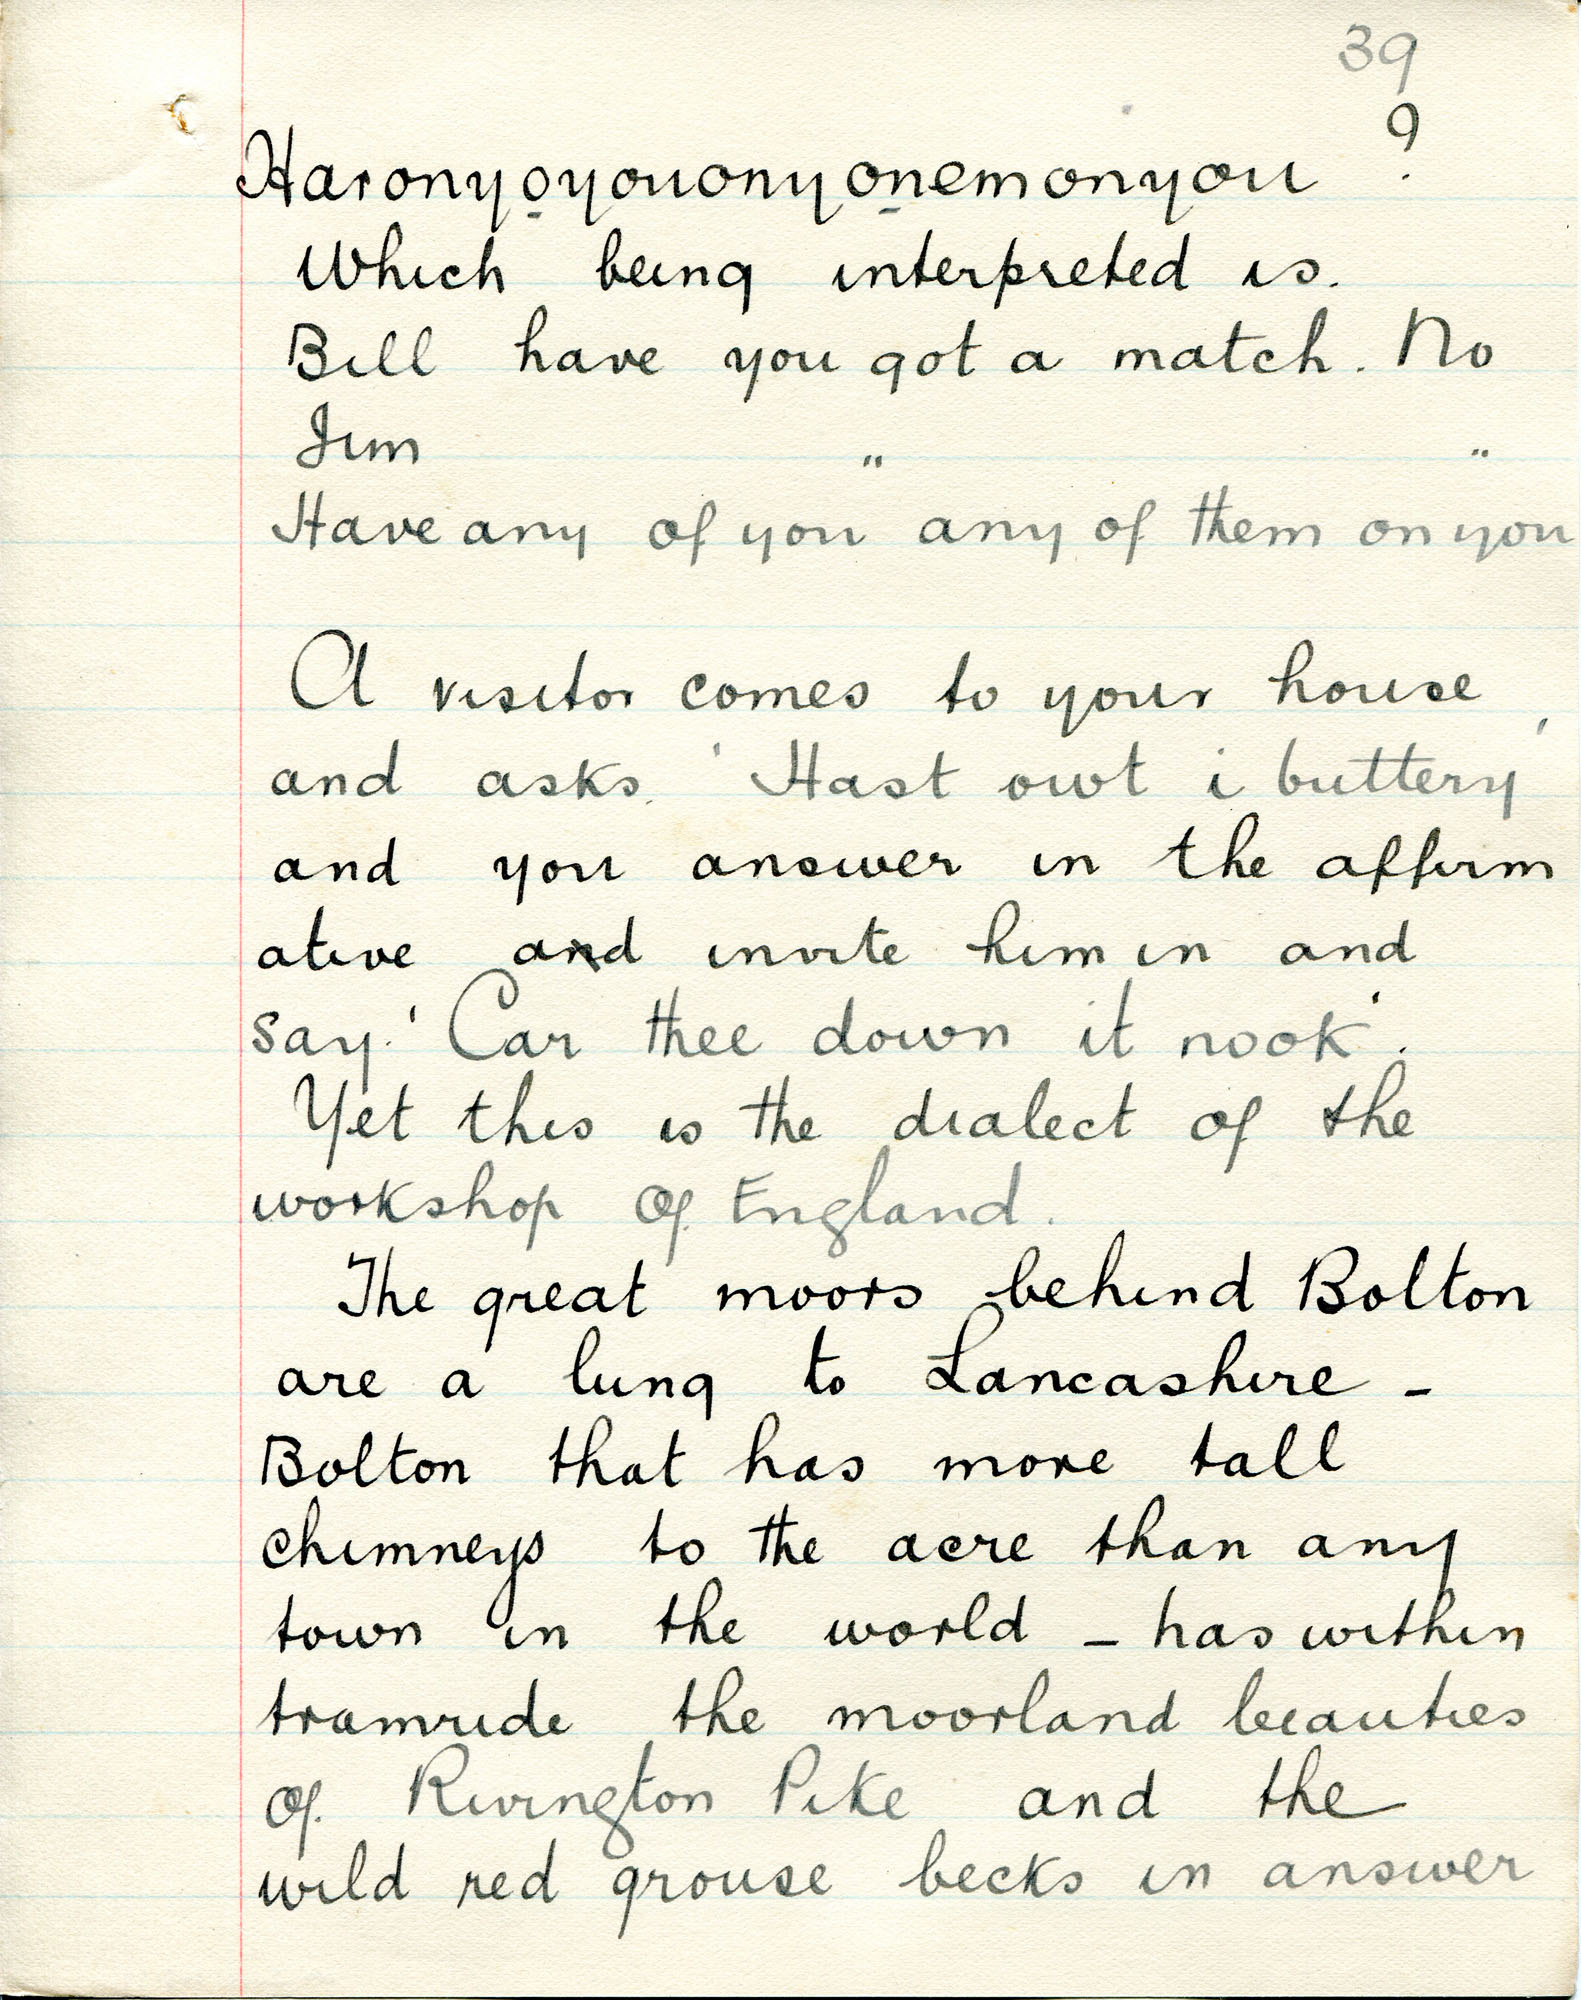 39
Haronyoyouonyonemonyou ?
Which being interpreted is.
Bill have you got a match. No
Jim " "
Have any of you any of them on you
A visitor comes to your house
and asks. 'Hast owt i buttery'
and you answer in the affirm
ative and invite him in and
say. 'Car thee down it nook'.
Yet this is the dialect of the
workshop of England.
The great moors behind Bolton
are a lung to Lancashire -
Bolton that has more tall
chimneys to the acre than any
town in the world - has within
tramride the moorland beauties
of Rivington Pike and the
wild red grouse becks in answer